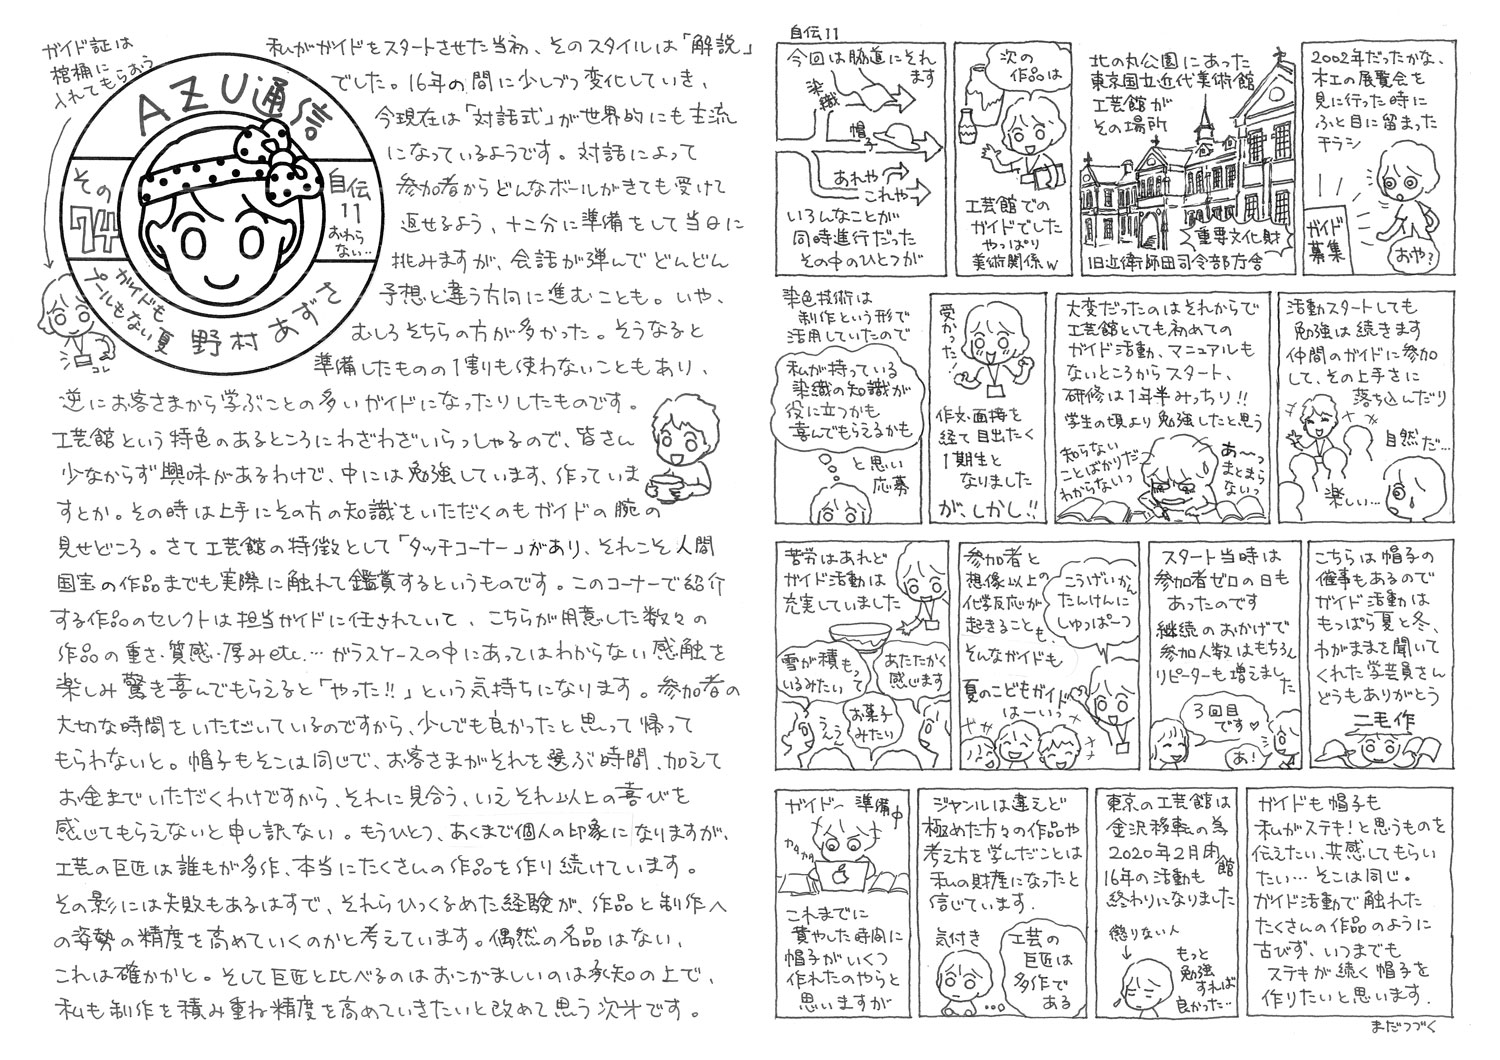 ガイド証は
棺桶に
入れてもらおう
AZU通信
その
74
自伝
11
おわら
ない…
ガイドも
プールもない夏
野村あずさ
コレ
私がガイドをスタートさせた当初、そのスタイルは「解説」
でした。16年の間に少しづつ変化していき、
今現在は「対話式」が世界的にも主流
になっているようです。対話によって
参加者からどんなボールがきても受けて
返せるよう、十二分に準備をして当日に
挑みますが、会話が弾んでどんどん
予想と違う方向に進むことも。いや、
むしろそちらの方が多かった。そうなると
準備したものの1割も使わないこともあり、
逆にお客さまから学ぶことの多いガイドになったりしたものです。
工芸館という特色のあるところにわざわざいらっしゃるので、皆さん
少なからず興味があるわけで、中には勉強しています、作っていま
すとか。その時は上手にその方の知識をいただくのもガイドの腕の
見せどころ。さて工芸館の特徴として「タッチコーナー」があり、それこそ人間
国宝の作品までも実際に触れて鑑賞するというものです。このコーナーで紹介
する作品のセレクトは担当ガイドに任されていて、こちらが用意した数々の
作品の重さ・質感・厚みetc.…ガラスケースの中にあってはわからない感触を
楽しみ驚き喜んでもらえると「やった!!」という気持ちになります。参加者の
大切な時間をいただいているのですから、少しでも良かったと思って帰って
もらわないと。帽子もそこは同じで、お客さまがそれを選ぶ時間、加えて
お金までいただくわけですから、それに見合う、いえそれ以上の喜びを
感じてもらえないと申し訳ない。もうひとつ、あくまで個人の印象になりますが、
工芸の巨匠は誰もが多作、本当にたくさんの作品を作り続けています。
その影には失敗もあるはずで、それらひっくるめた経験が、作品と制作へ
の姿勢の精度を高めていくのかと考えています。偶然の名品はない、
これは確かかと。そして巨匠と比べるのはおこがましいのは承知の上で、
私も制作を積み重ね精度を高めていきたいと改めて思う次第です。
自伝11
今回は脇道にそれ
ます
染織
帽子
あれや
これや
いろんなことが
同時進行だった
その中のひとつが
次の
作品は
工芸館での
ガイドでした
やっぱり
美術関係w
北の丸公園にあった
東京国立近代美術館
工芸館が
その場所
重要文化財
旧近衛師団司令部庁舎
2002年だったかな、
木工の展覧会を
見に行った時に
ふと目に留まった
チラシ
ガイド
募集
おや?
染色技術は
制作という形で
活用していたので
私が持っている
染織の知識が
役に立つかも
喜んでもらえるかも
と思い
応募
受かった!
作文・面接を
経て目出たく
1期生と
なりました
が、しかし!!
大変だったのはそれからで
工芸館としても初めての
ガイド活動、マニュアルも
ないところからスタート、
研修は1年半みっちり!!
学生の頃より勉強したと思う
知らない
ことばかりだ
わからないっ
あ〜っ
まとまら
ないっ
活動スタートしても
勉強は続きます
仲間のガイドに参加
して、その上手さに
落ち込んだり
自然だ…
楽しい…
苦労はあれど
ガイド活動は
充実していました
雪が積もって
いるみたい
あたたかく
感じます
ええ
お菓子
みたい
参加者と
想像以上の
化学反応が
起きることも、
そんなガイドも
こうげいかん
たんけんに
しゅっぱーつ
夏のこどもガイド
はーいっ
スタート当時は
参加者ゼロの日も
あったのです
継続のおかげで
参加人数はもちろん
リピーターも増えました
3回目
です♡
あ!
こちらは帽子の
催事もあるので
ガイド活動は
もっぱら夏と冬、
わがままを聞いて
くれた学芸員さん
どうもありがとう
二毛作
ガイド〜準備中
カタカタ
これまでに
費やした時間に
帽子がいくつ
作れたのやらと
思いますが
ジャンルは違えど
極めた方々の作品や
考え方を学んだことは
私の財産になったと
信じています.
気付き
工芸の
巨匠は
多作で
ある
東京の工芸館は
金沢移転の為
2020年2月閉館
16年の活動も
終わりになりました
懲りない人
もっと
勉強
すれば
良かった…
ガイドも帽子も
私がステキ!と思うものを
伝えたい、共感してもらい
たい…そこは同じ。
ガイド活動で触れた
たくさんの作品のように
古びず、いつまでも
ステキが続く帽子を
作りたいと思います.
まだつづく